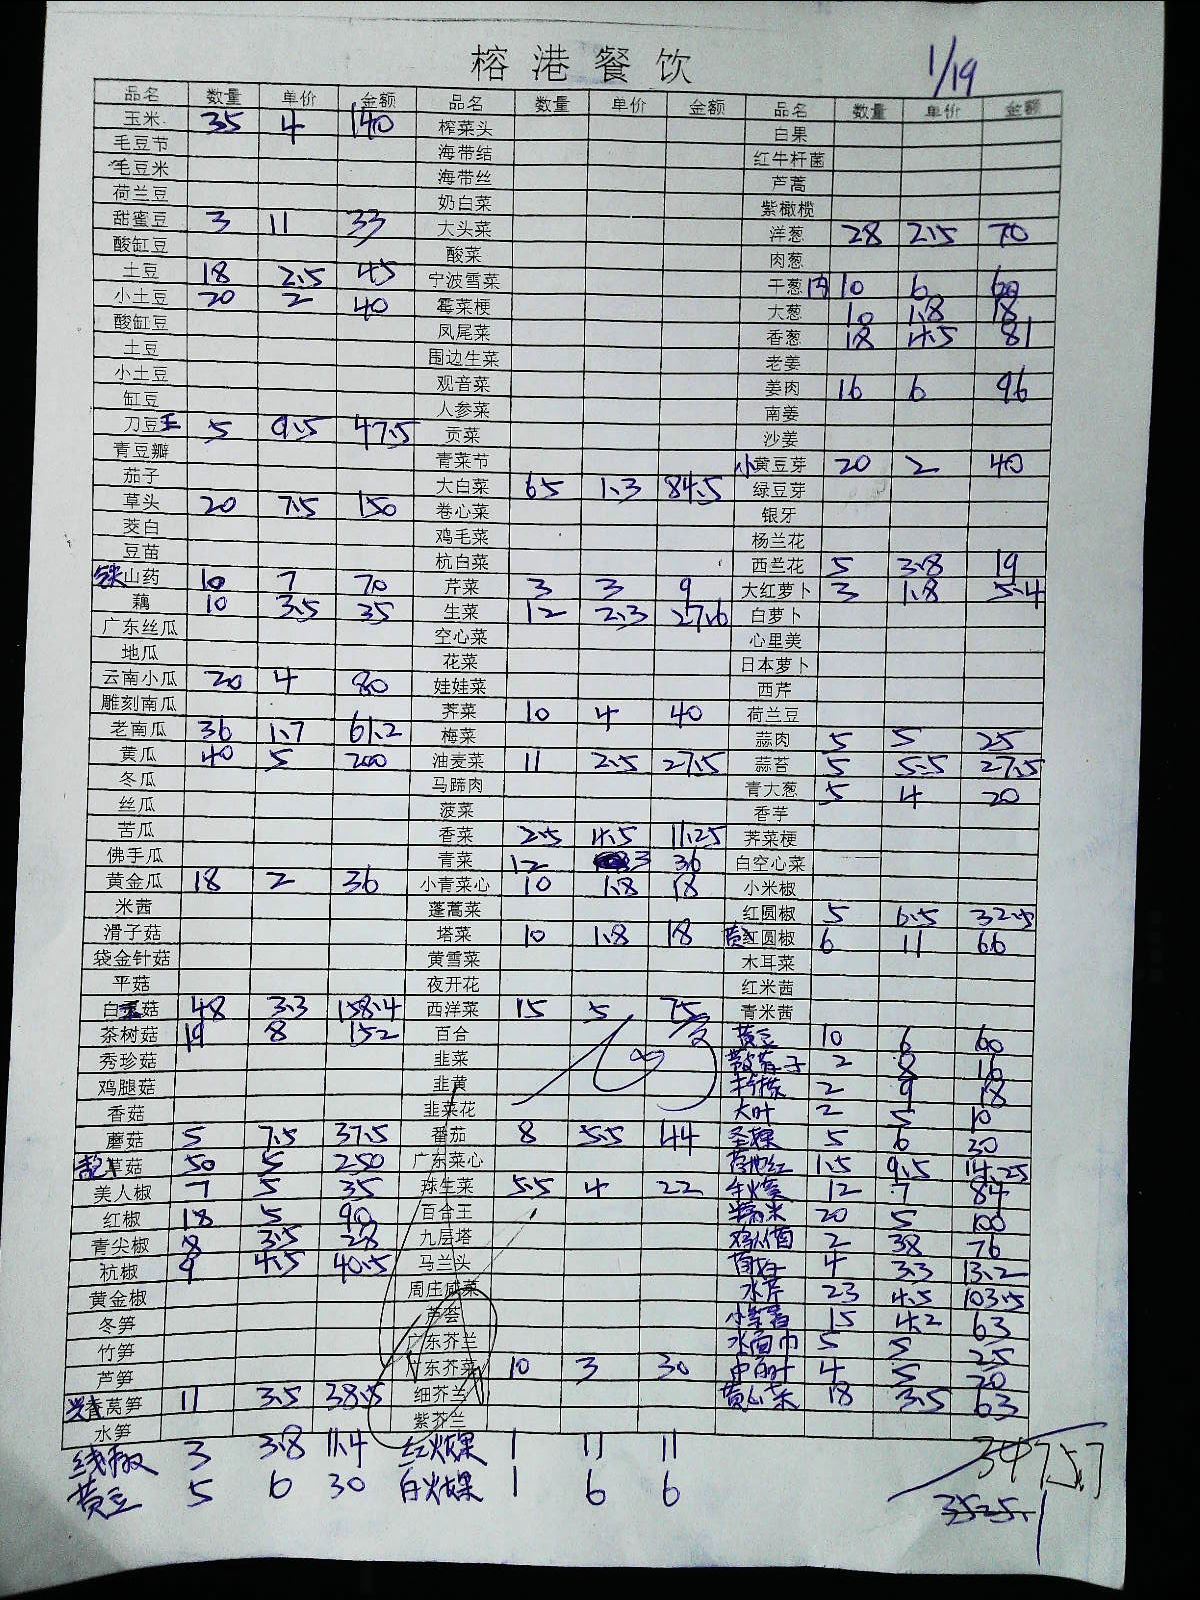 榕港餐饮
1/19
品名 数量 单价 金额 品名 数量 单价 金额 品名 数量 单价 金额
玉米 35 4 140 榨菜头 白果
毛豆节 海带结 红牛杆菌
毛豆米 海带丝 芦蒿
荷兰豆 奶白菜 紫橄榄
甜蜜豆 3 11 33 大头菜 洋葱 28 2.5 70
酸缸豆 酸菜 肉葱
土豆 18 2.5 45 宁波雪菜 干葱肉 10 6 60
小土豆 20 2 40 霉菜梗 大葱 10 1.8 18
酸缸豆 凤尾菜 香葱 18 4.5 81
土豆 围边生菜 老姜
小土豆 观音菜 姜肉 16 6 96
缸豆 人参菜 南姜
刀豆王 5 9.5 47.5 贡菜 沙姜
青豆瓣 青菜节 小黄豆芽 20 2 40
茄子 大白菜 65 1.3 84.5 绿豆芽
草头 20 7.5 150 卷心菜 银牙
茭白 鸡毛菜 杨兰花
豆苗 杭白菜 西兰花 5 3.8 19
铁山药 10 7 70 芹菜 3 3 9 大红萝卜 3 1.8 5.4
藕 10 3.5 35 生菜 12 2.3 27.6 白萝卜
广东丝瓜 空心菜 心里美
地瓜 花菜 日本萝卜
云南小瓜 20 4 80 娃娃菜 西芹
雕刻南瓜 荠菜 10 4 40 荷兰豆
老南瓜 36 1.7 61.2 梅菜 蒜肉 5 5 25
黄瓜 40 5 200 油麦菜 11 2.5 27.5 蒜苔 5 5.5 27.5
冬瓜 马蹄肉 青大葱 5 4 20
丝瓜 菠菜 香芋
苦瓜 香菜 2.5 4.5 11.25 荠菜梗
佛手瓜 青菜 12 3 36 白空心菜
黄金瓜 18 2 36 小青菜心 10 1.8 18 小米椒
米茜 蓬蒿菜 红圆椒 5 6.5 32.5
滑子菇 塔菜 10 1.8 18 黄红圆椒 6 11 66
袋金针菇 黄雪菜 木耳菜
平菇 夜开花 红米茜
白玉菇 48 3.3 158.4 西洋菜 15 5 75 青米茜
茶树菇 19 8 152 百合 黄豆 10 6 60
秀珍菇 韭菜 2 8 16
鸡腿菇 韭黄 2 9 18
香菇 韭菜花 大叶 2 5 10
蘑菇 5 7.5 37.5 番茄 8 5.5 44 圣果 5 6 30
草菇 50 5 250 广东菜心 1.5 9.5 14.25
美人椒 7 5 35 球生菜 5.5 4 22 12 7 84
红椒 18 5 90 百合王 20 5 100
青尖椒 8 3.5 28 九层塔 2 38 76
杭椒 9 4.5 40.5 马兰头 4 3.3 13.2
黄金椒 周庄咸菜 水芹 23 4.5 103.5
冬笋 芦荟 15 4.2 63
竹笋 广东芥兰 水面巾 5 5 25
芦笋 广东芥菜 10 3 30 4 5 20
青莴笋 11 3.5 38.5 细芥兰 黄心菜 18 3.5 63
水笋 紫芥兰
线椒 3 3.8 11.4 红火龙果 1 11 11
黄豆 5 6 30 白火龙果 1 6 6
3475.7
3525.1